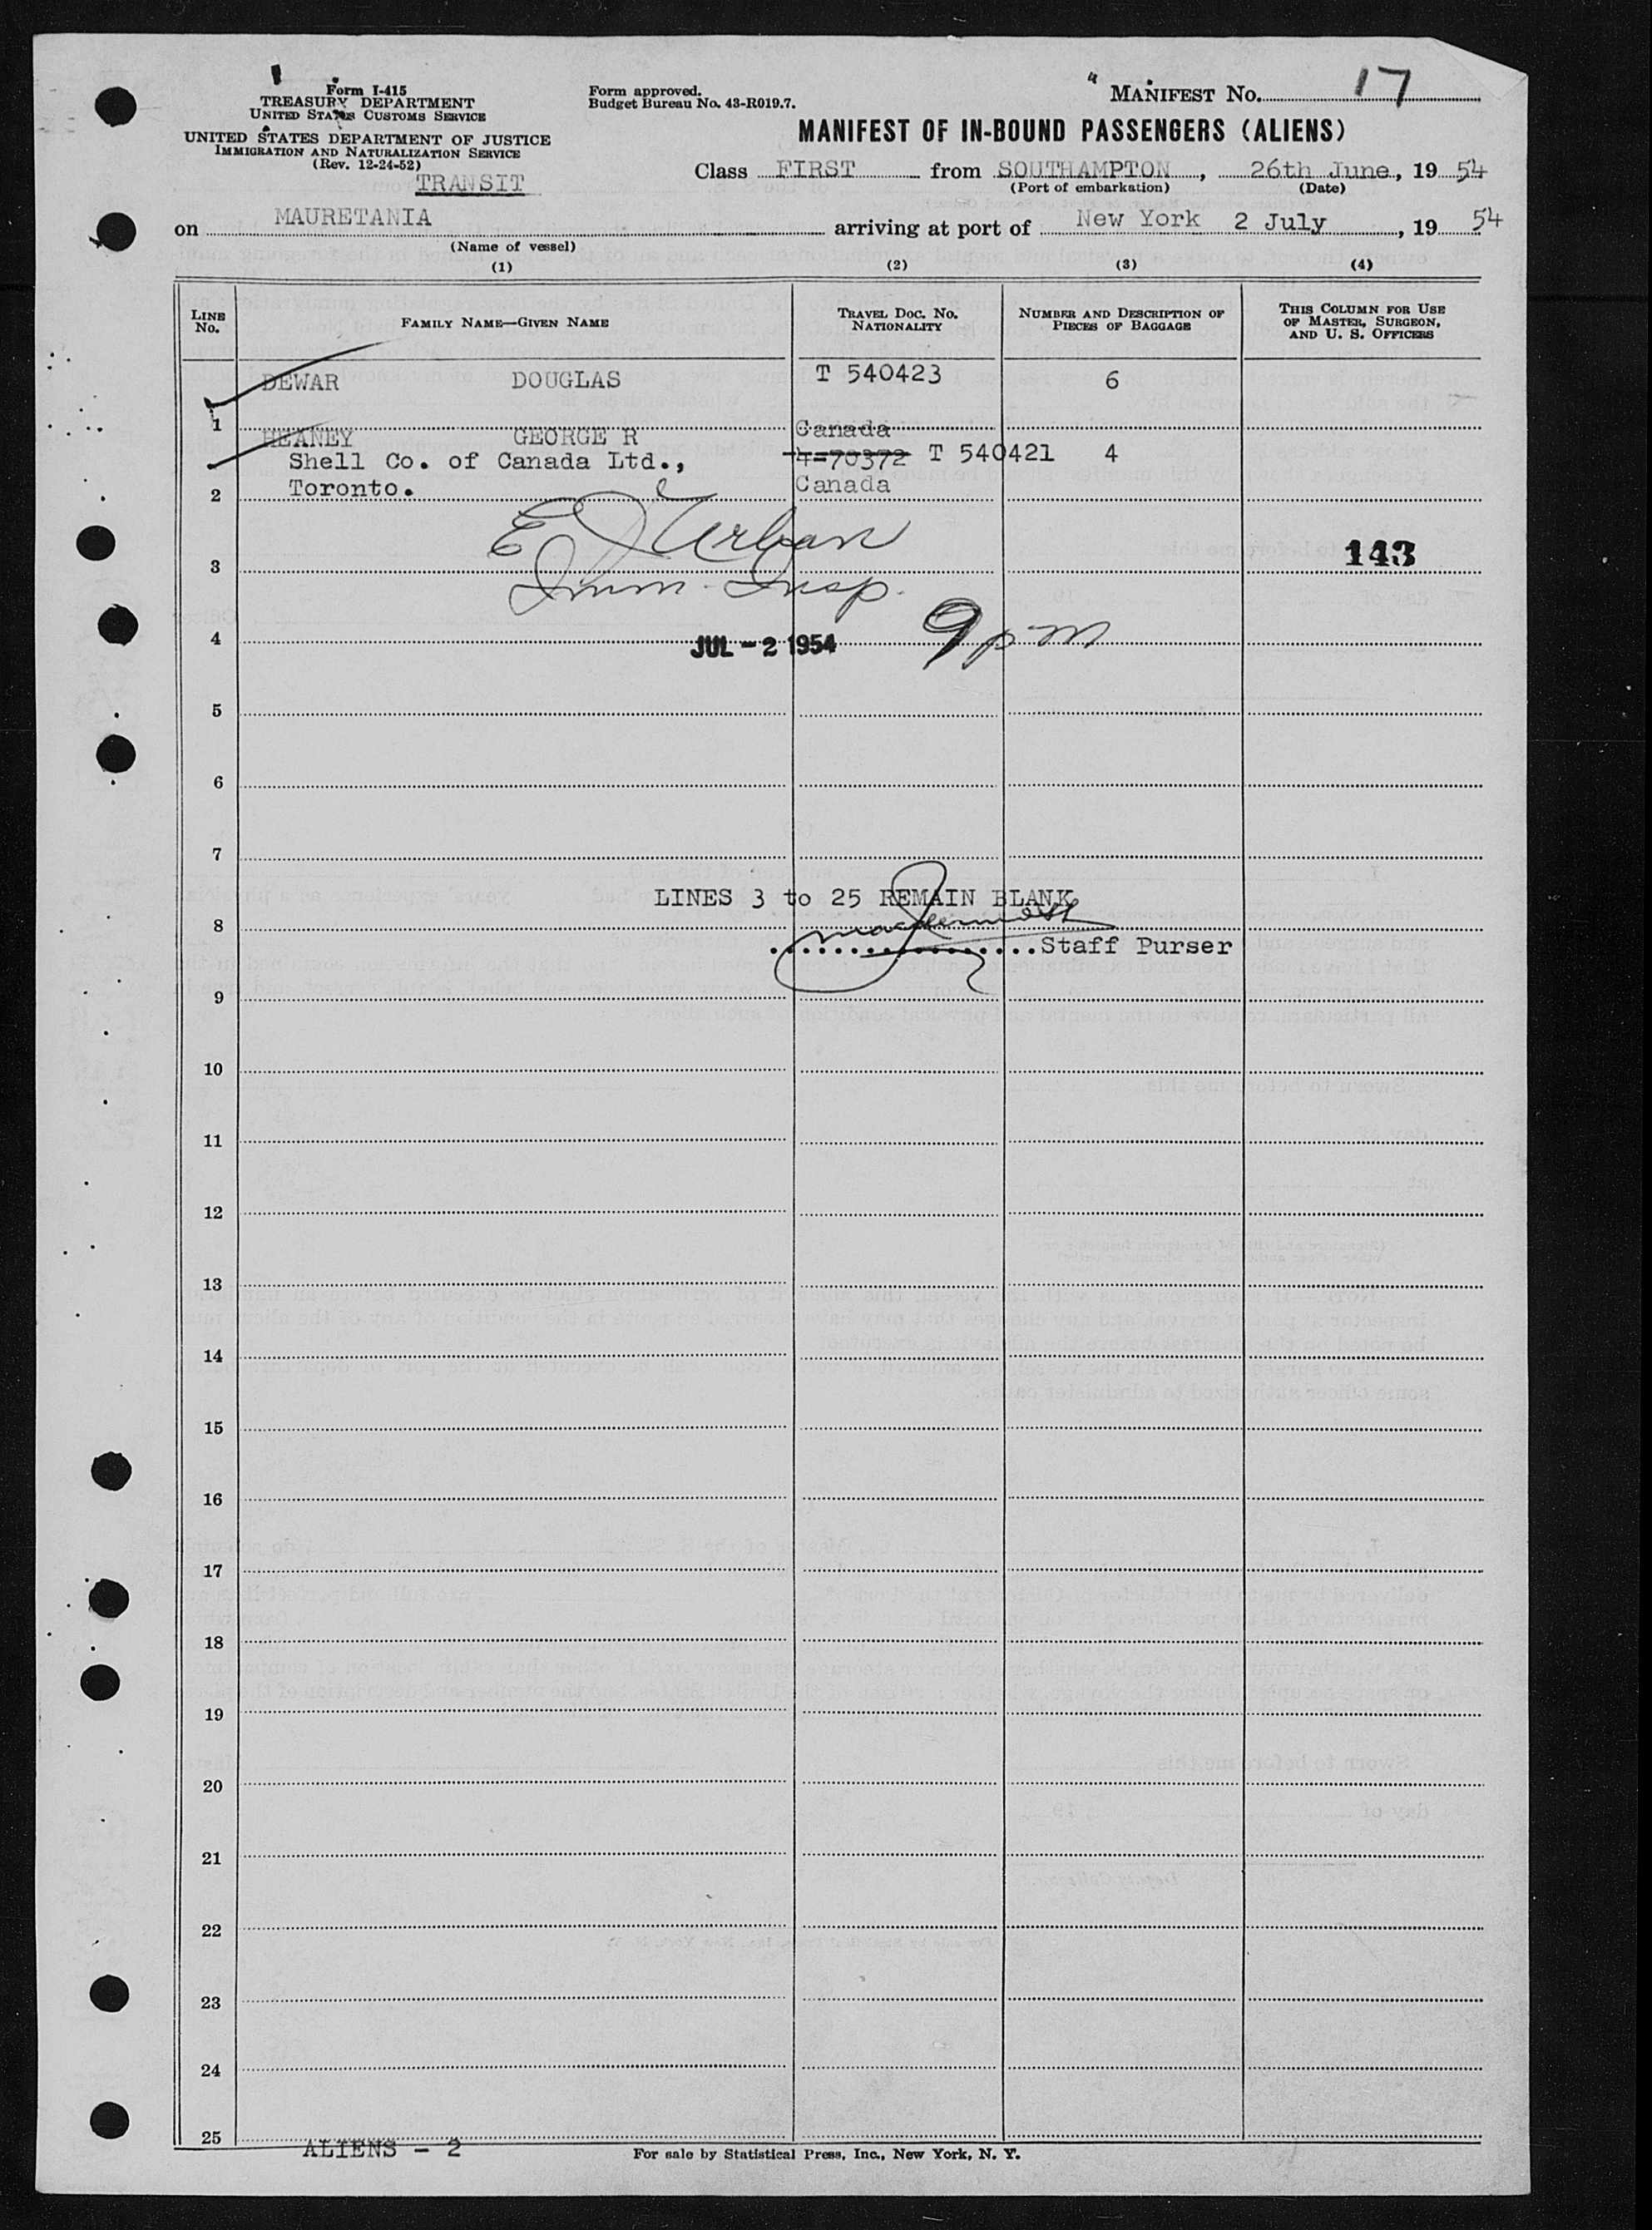 Form I-415
TREASURY DEPARTMENT
UNITED STATES CUSTOMS SERVICE
UNITED STATES DEPARTMENT OF JUSTICE
IMMIGRATION AND NATURALIZATION SERVICE
(Rev. 12-24-52)
TRANSIT
Form approved.
Budget Bureau No. 43-R019.7.
MANIFEST NO. 17
MANIFEST OF IN-BOUND PASSENGERS (ALIENS)
Class FIRST from SOUTHAMPTON, 26th June, 19 54
(Port of embarkation) (Date)
on MAURETANIA arriving at port of New York 2 July, 19 54
(Name of vessel)
(1) (2) (3) (4)
LINE No. FAMILY NAME—GIVEN NAME TRAVEL DOC. NO. NATIONALITY NUMBER AND DESCRIPTION OF PIECES OF BAGGAGE THIS COLUMN FOR USE OF MASTER, SURGEON, AND U. S. OFFICERS
DEWAR DOUGLAS T 540423 6
1 Canada
HEANEY GEORGE R
Shell Co. of Canada Ltd., 4-70372 T 540421 4
2 Toronto. Canada
E J Urban
3 143
Imm. Insp.
4 JUL - 2 1954 9 pm
5
6
7
LINES 3 to 25 REMAIN BLANK
8
Staff Purser
9
10
11
12
13
14
15
16
17
18
19
20
21
22
23
24
25
ALIENS - 2
For sale by Statistical Press, Inc., New York, N. Y.